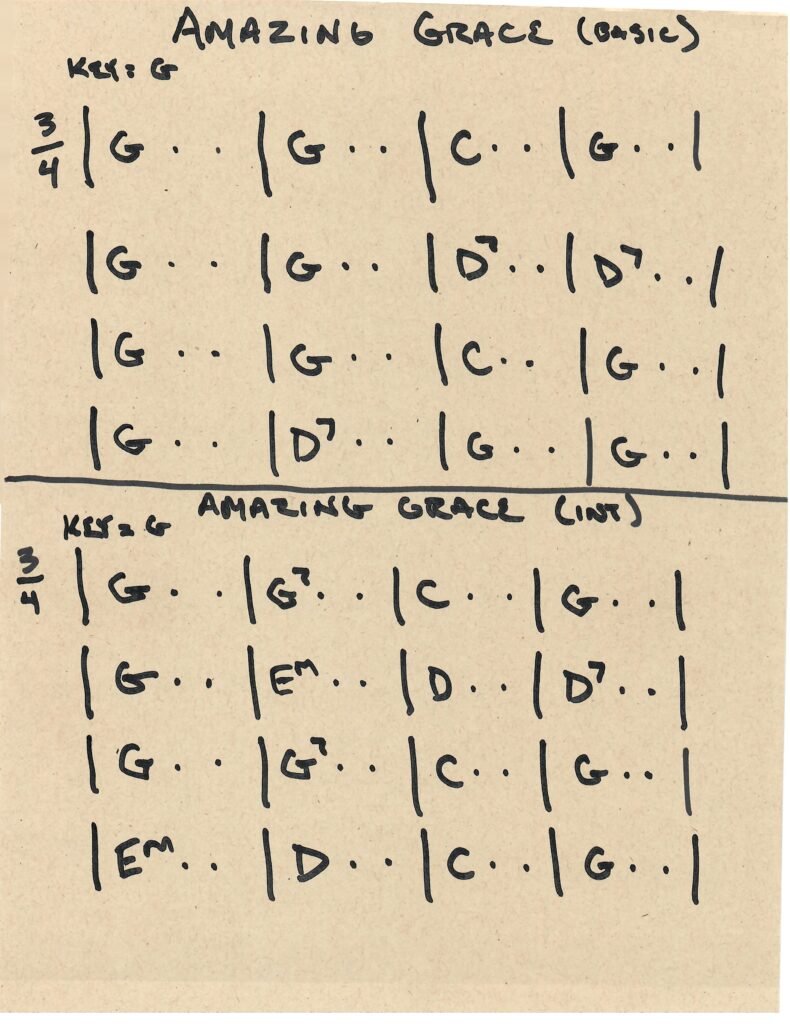 AMAZING GRACE (BASIC)
KEY= G
3/4 | G . . | G . . | C . . | G . . |
| G . . | G . . | D7 . . | D7 . . |
| G . . | G . . | C . . | G . . |
| G . . | D7 . . | G . . | G . . |
AMAZING GRACE (INT)
KEY= G
3/4 | G . . | G7 . . | C . . | G . . |
| G . . | EM . . | D . . | D7 . . |
| G . . | G7 . . | C . . | G . . |
| EM . . | D . . | C . . | G . . |